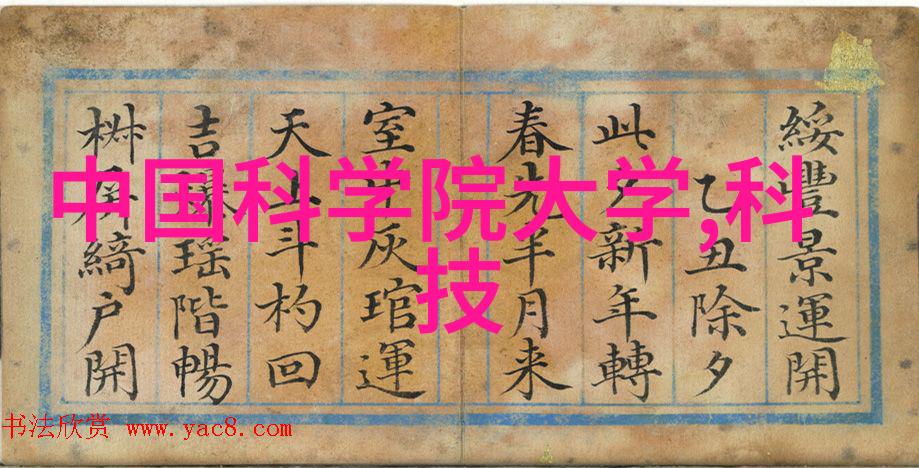 中国科学院大学,科
技
綏豐景運開
乙丑除夕
此夕新年轉
春光半月来
室中灰琯運
天上斗杓回
吉瑶階暢
綺户開
书法欣赏 www.yac8.com